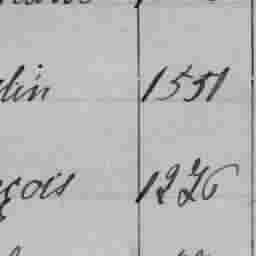 lin 1551
çois 1276